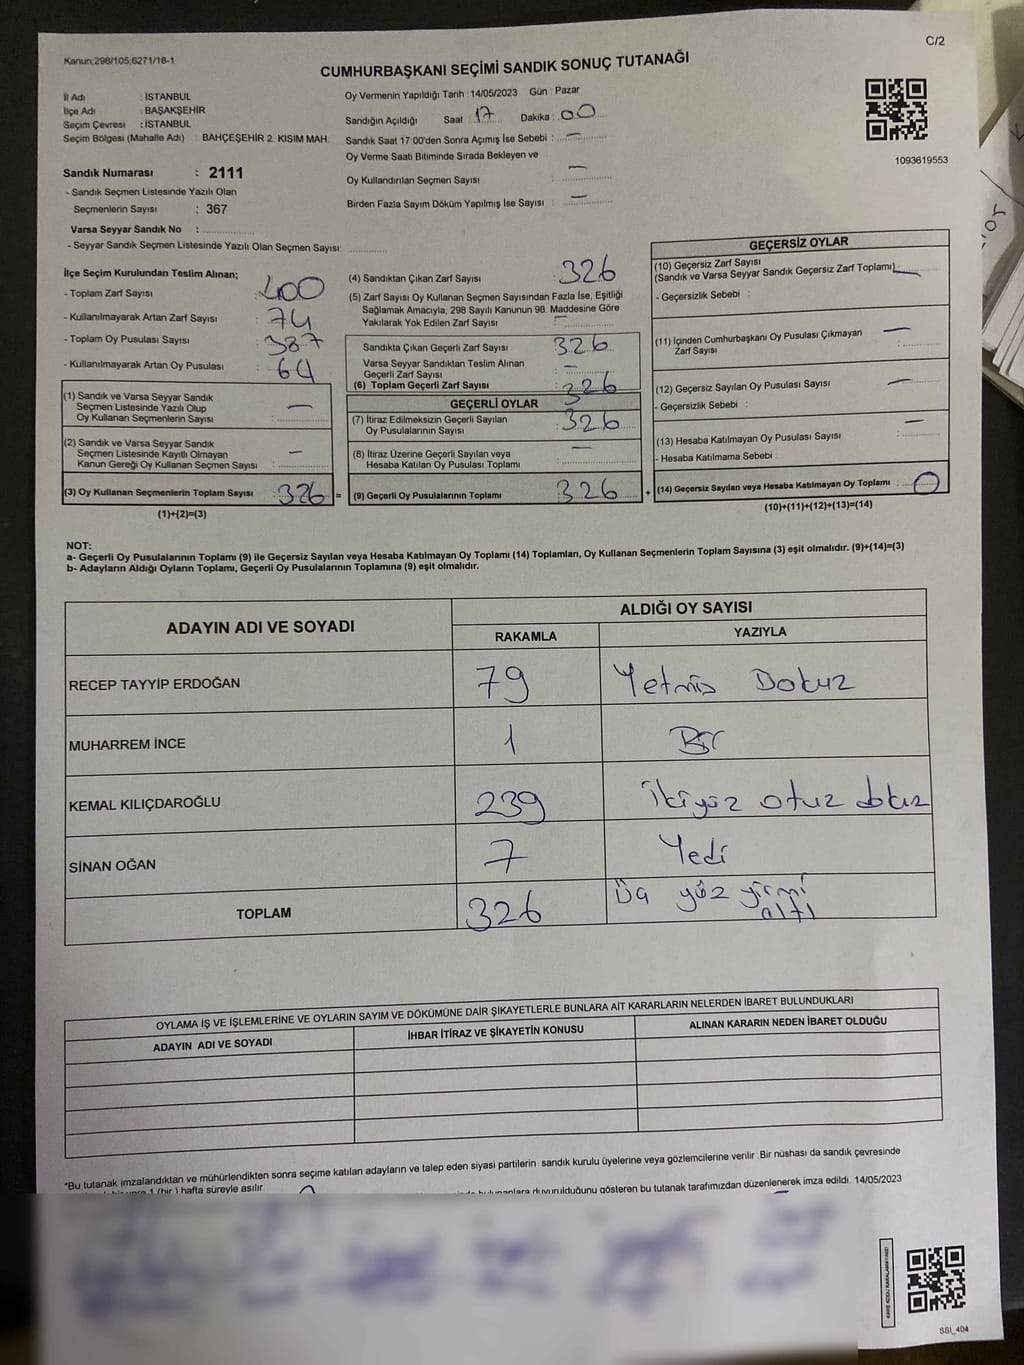 Kanun 298/105,6271/18-1
C/2
CUMHURBAŞKANI SEÇİMİ SANDIK SONUÇ TUTANAĞI
İl Adı : İSTANBUL
İlçe Adı : BAŞAKŞEHİR
Seçim Çevresi : İSTANBUL
Seçim Bölgesi (Mahalle Adı) BAHÇEŞEHİR 2. KISIM MAH.
Sandık Numarası : 2111
- Sandık Seçmen Listesinde Yazılı Olan
Seçmenlerin Sayısı : 367
Varsa Seyyar Sandık No :
- Seyyar Sandık Seçmen Listesinde Yazılı Olan Seçmen Sayısı:
Oy Vermenin Yapıldığı Tarih : 14/05/2023 Gün : Pazar
Sandığın Açıldığı Saat 17 Dakika : 00
Sandık Saat 17:00'den Sonra Açımış İse Sebebi : —
Oy Verme Saati Bitiminde Sırada Bekleyen ve
Oy Kullandırılan Seçmen Sayısı : —
Birden Fazla Sayım Döküm Yapılmış İse Sayısı : —
1093619553
İlçe Seçim Kurulundan Teslim Alınan;
- Toplam Zarf Sayısı : 400
- Kullanılmayarak Artan Zarf Sayısı : 74
- Toplam Oy Pusulası Sayısı : 387
- Kullanılmayarak Artan Oy Pusulası : 64
(1) Sandık ve Varsa Seyyar Sandık
Seçmen Listesinde Yazılı Olup
Oy Kullanan Seçmenlerin Sayısı : —
(2) Sandık ve Varsa Seyyar Sandık
Seçmen Listesinde Kayıtlı Olmayan
Kanun Gereği Oy Kullanan Seçmen Sayısı : —
(3) Oy Kullanan Seçmenlerin Toplam Sayısı : 326 =
(1)+(2)=(3)
(4) Sandıktan Çıkan Zarf Sayısı : 326
(5) Zarf Sayısı Oy Kullanan Seçmen Sayısından Fazla İse, Eşitliği
Sağlamak Amacıyla, 298 Sayılı Kanunun 98. Maddesine Göre
Yakılarak Yok Edilen Zarf Sayısı : —
Sandıkta Çıkan Geçerli Zarf Sayısı : 326
Varsa Seyyar Sandıktan Teslim Alınan
Geçerli Zarf Sayısı : —
(6) Toplam Geçerli Zarf Sayısı : 326
GEÇERLİ OYLAR
(7) İtiraz Edilmeksizin Geçerli Sayılan
Oy Pusulalarının Sayısı : 326
(8) İtiraz Üzerine Geçerli Sayılan veya
Hesaba Katılan Oy Pusulası Toplamı : —
(9) Geçerli Oy Pusulalarının Toplamı : 326 +
GEÇERSİZ OYLAR
(10) Geçersiz Zarf Sayısı
(Sandık ve Varsa Seyyar Sandık Geçersiz Zarf Toplamı) : —
- Geçersizlik Sebebi :
(11) İçinden Cumhurbaşkanı Oy Pusulası Çıkmayan
Zarf Sayısı : —
(12) Geçersiz Sayılan Oy Pusulası Sayısı : —
- Geçersizlik Sebebi :
(13) Hesaba Katılmayan Oy Pusulası Sayısı : —
- Hesaba Katılmama Sebebi :
(14) Geçersiz Sayılan veya Hesaba Katılmayan Oy Toplamı : 0
(10)+(11)+(12)+(13)=(14)
NOT:
a- Geçerli Oy Pusulalarının Toplamı (9) ile Geçersiz Sayılan veya Hesaba Katılmayan Oy Toplamı (14) Toplamları, Oy Kullanan Seçmenlerin Toplam Sayısına (3) eşit olmalıdır. (9)+(14)=(3)
b- Adayların Aldığı Oyların Toplamı, Geçerli Oy Pusulalarının Toplamına (9) eşit olmalıdır.
ADAYIN ADI VE SOYADI
ALDIĞI OY SAYISI
RAKAMLA YAZIYLA
RECEP TAYYİP ERDOĞAN 79 Yetmiş Dokuz
MUHARREM İNCE 1 Bir
KEMAL KILIÇDAROĞLU 239 ikiyüz otuz dokuz
SİNAN OĞAN 7 Yedi
TOPLAM 326 Üç yüz yirmi altı
OYLAMA İŞ VE İŞLEMLERİNE VE OYLARIN SAYIM VE DÖKÜMÜNE DAİR ŞİKAYETLERLE BUNLARA AİT KARARLARIN NELERDEN İBARET BULUNDUKLARI
ADAYIN ADI VE SOYADI İHBAR İTİRAZ VE ŞİKAYETİN KONUSU ALINAN KARARIN NEDEN İBARET OLDUĞU
*Bu tutanak imzalandıktan ve mühürlendikten sonra seçime katılan adayların ve talep eden siyasi partilerin sandık kurulu üyelerine veya gözlemcilerine verilir .Bir nüshası da sandık çevresinde
1 (bir ) hafta süreyle asılır.
bulunanlara duyurulduğunu gösteren bu tutanak tarafımızdan düzenlenerek imza edildi. 14/05/2023
SSI_404